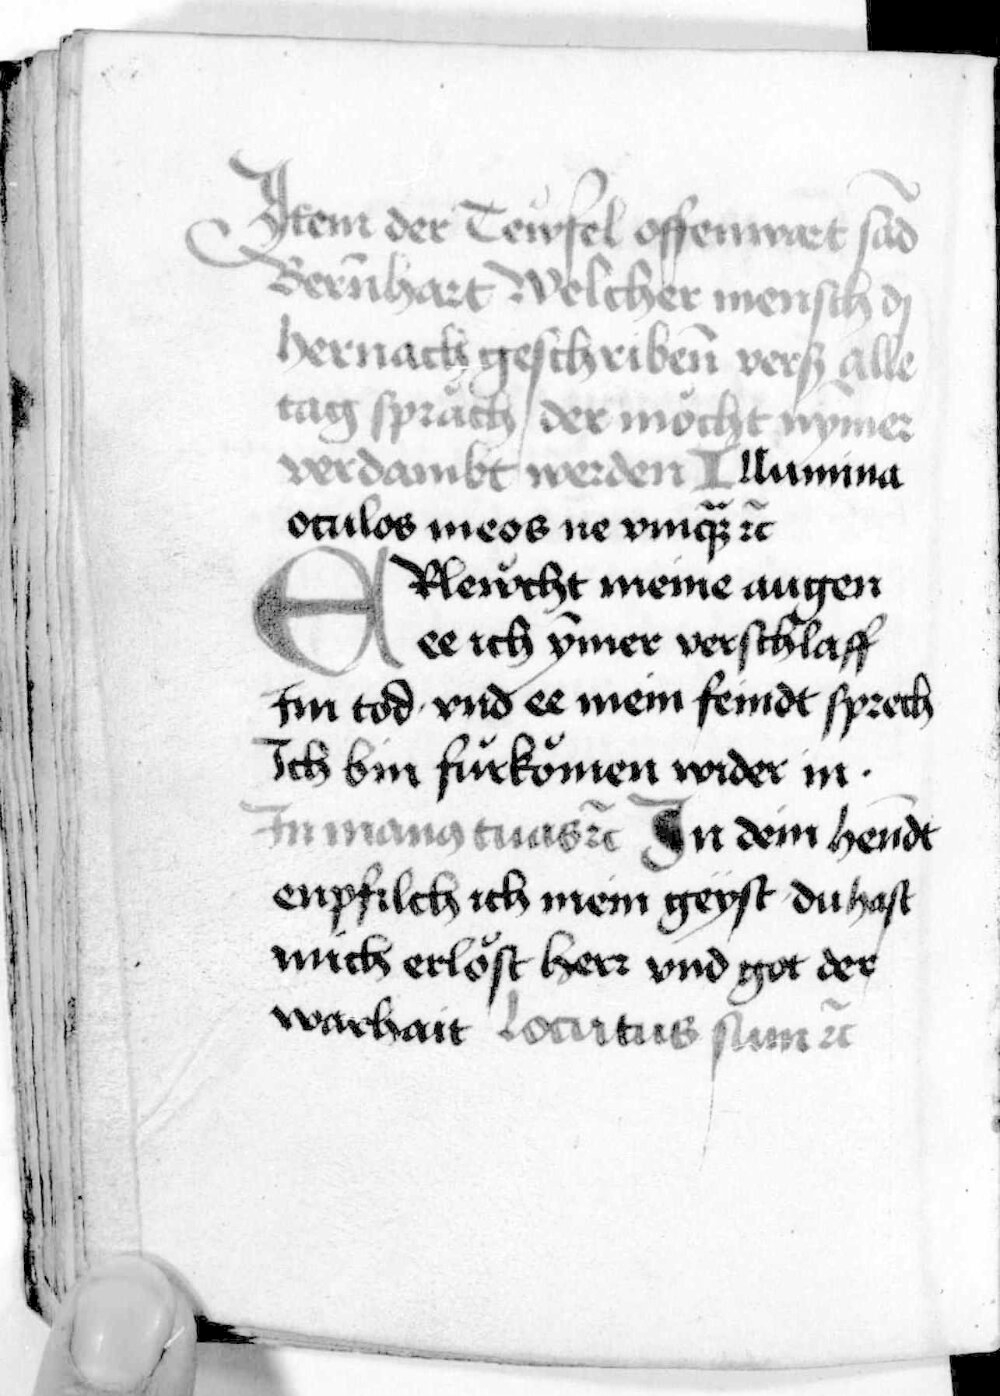 Item der Teẅfel offenwart sād
Bern̄hart Welcher mensch dj
hernach geschribēn verß alle
tag spräch / der möcht nȳmer
verdambt werden Illumina
oculos meos ne vmqꝫ ⁊c̄
ERleẅcht meine augen
ee ich ȳmer verschlaff
Im tod · vnd ee mein feindt sprech
Ich bin fürkömen wider in ·
In manꝰ tuas ⁊c̄ In dein hēndt
enpfilch ich mein geÿst du hast
mich erlöst herr vnd got der
warhait Locutus sum ⁊c̄